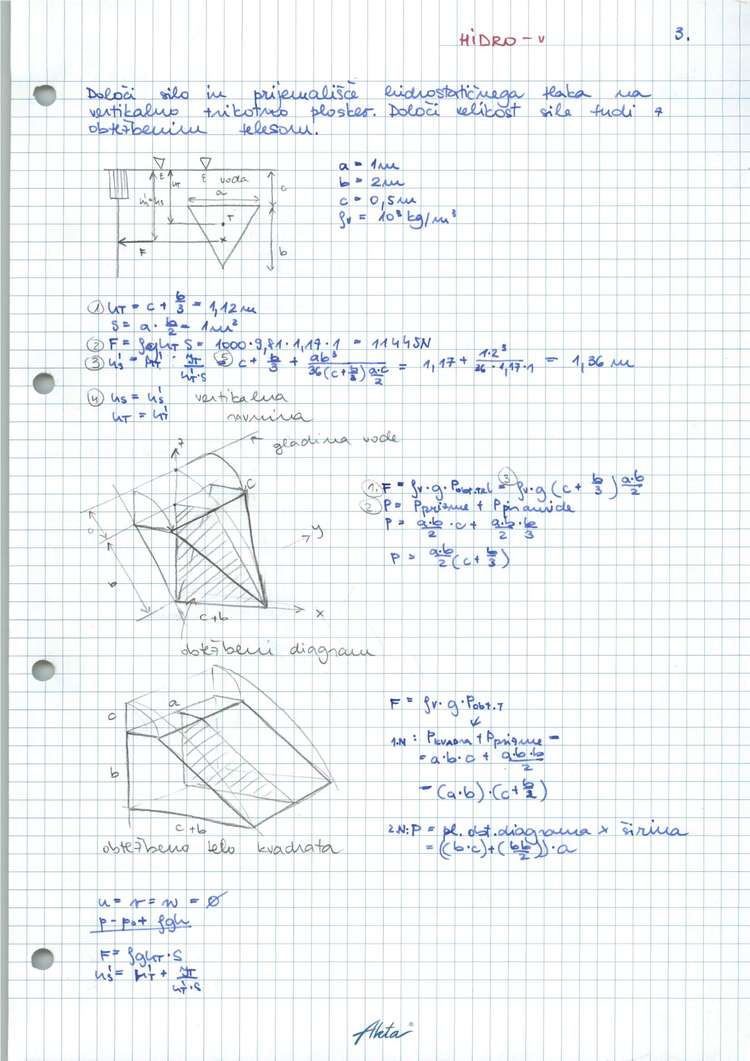 HIDRO - V
3.
Določi silo in prijemališče hidrostatičnega tlaka na
vertikalno trikotno ploskev. Določi velikost sile tudi z
obtežbenim telesom.
a = 1m
b = 2m
c = 0,5m
ρv = 10³ kg/m³
voda
a
c
T
F
b
① hT = c + b/3 = 1,12m
S = a · b/2 = 1m²
② F = ρghT S = 1000·9,81·1,17·1 = 11445N
③ hs' = hT' + IT/(hT'·S) ⑤= c + b/3 + ab³/(36(c+b/3) a·c/2) = 1,17 + 1·2³/(36·1,17·1) = 1,36 m
④ hs = hs' vertikalna
hT = hT' ravnina
z
gladina vode
c
y
b
x
c+b
1. F = ρv·g·Pobt.tel ③= ρv·g (c + b/3) a·b/2
2. P = Pprizme + Ppiramide
P = a·b/2 ·c + a·b/2 · b/3
P = a·b/2 (c + b/3)
obtežbeni diagram
c
a
b
c+b
obteženo telo kvadrata
F = ρv·g·Pobt.T
1.N: Pkvadra + Pprizme =
= a·b·c + a·b·b/2
= (a·b)·(c+b/2)
2.N: P = pl. obt. diagrama × širina
= ((b·c)+(bb/2))·a
u = v = w = ∅
p = p₀ + ρgh
F = ρghT·S
hs' = hT' + IT/(hT'·S)
Akta